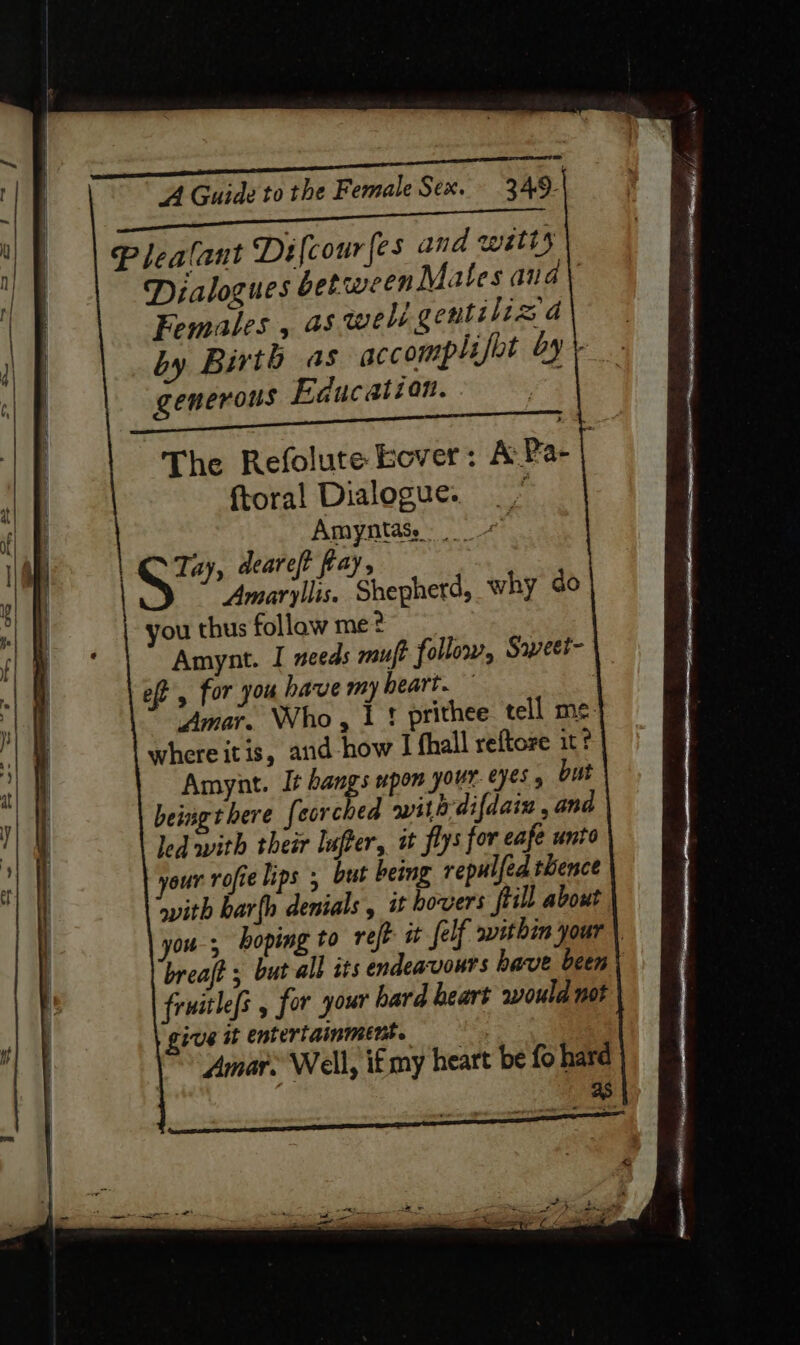 A Guide to the Female Sex. 349
Pleaſant Diſcourſes and witty
Dialogues between Males and
Females , as well gentiliz'd
by Birth as accompliſht by
generous Education.
The Reſolute Lover : A Pa-
ſtoral Dialogue.
Amyntas.
STay, deareſt ſtay,
Amaryllis. Shepherd, why do
you thus follow me ?
Amynt. I needs muſt follow, Sweet-
eſt , for you have my heart.
Amar. Who , I ? prithee tell me
where it is, and how I ſhall reſtore it ?
Amynt. It hangs upon your eyes , but
being there ſcorched with diſdain , and
led with their luſter, it flys for eaſe unto
your roſie lips ; but being repulſed thence
with harſh denials , it hovers ſtill about
you ; hoping to reſt it ſelf within your
breaſt ; but all its endeavours have been
fruitleſs , for your hard heart would not
give it entertainment.
Amar. Well, if my heart be ſo hard
as